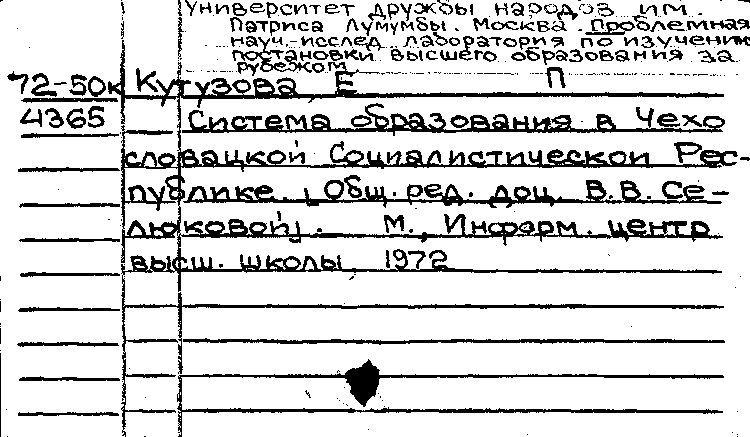 Университет дружбы народов им.
Патриса Лумумбы. Москва. Проблемная
науч.-исслед лаборатория по изучению
постановки высшего образования за
рубежом
72-50к Кутузова Е П
4365 Система образования в Чехо
словацкой Социалистической Рес-
публике. [Общ. ред. доц. В.В. Се-
люковой]. - М., Информ. центр
высш. школы, 1972